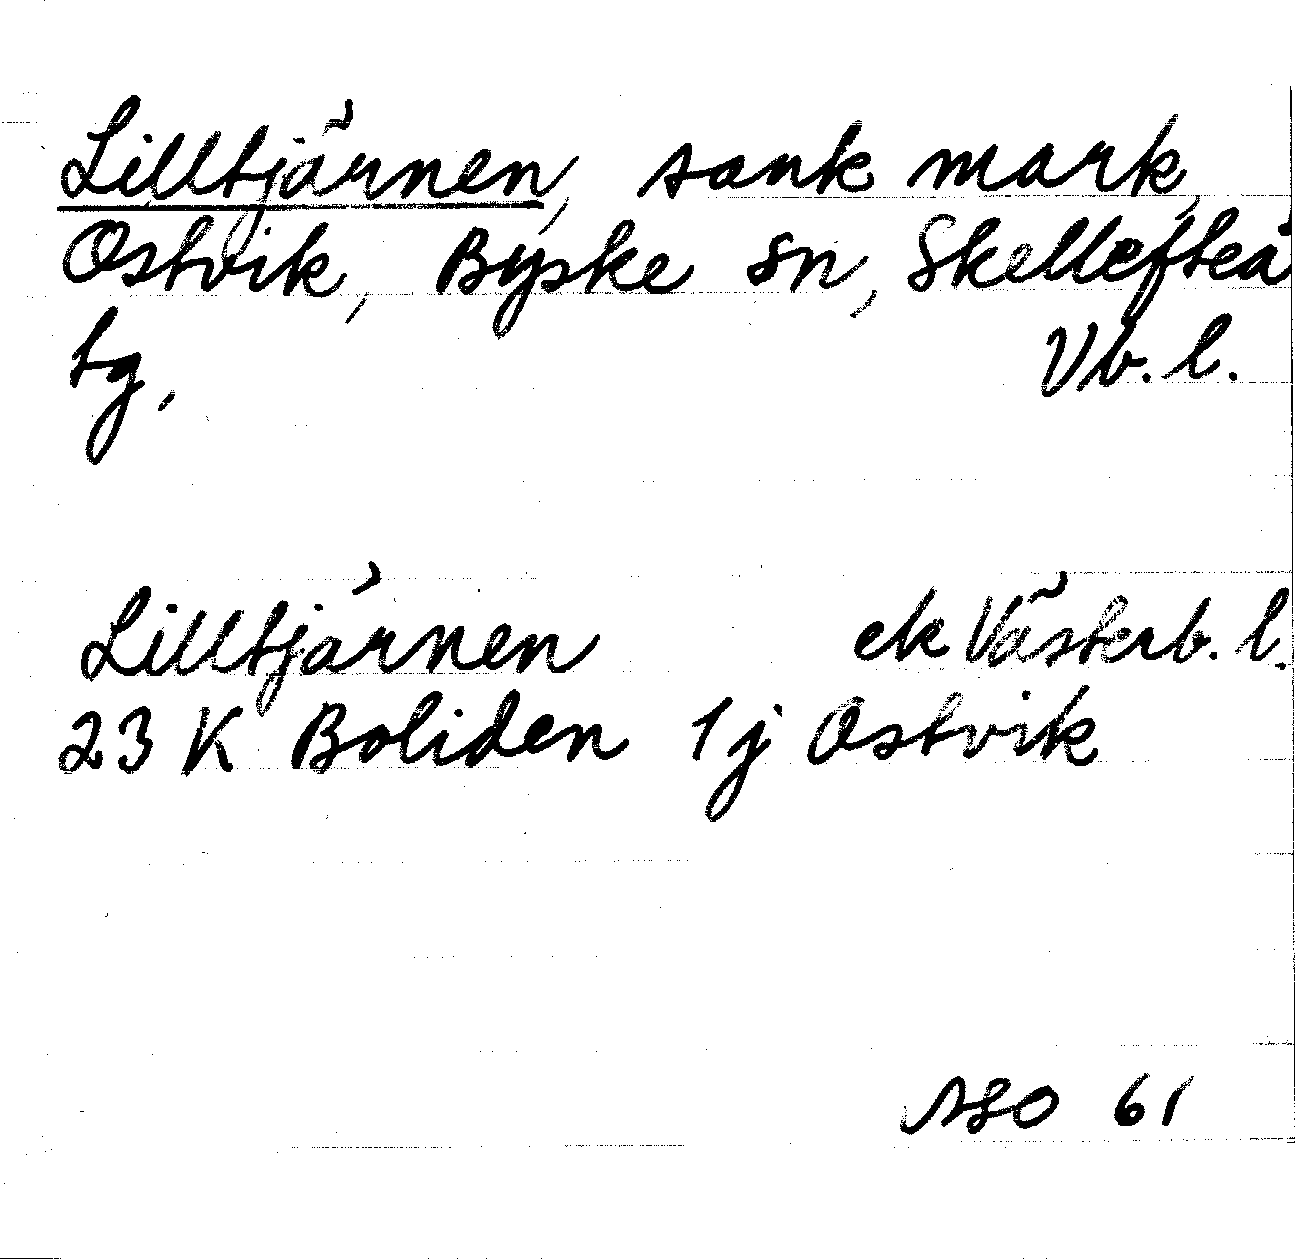 Lilltjärnen, sank mark,
Ostvik, Byske sn, Skellefteå
tg, Vb. l.
Lilltjärnen ek Västerb. l.
23 K Boliden 1j Ostvik
ASO 61